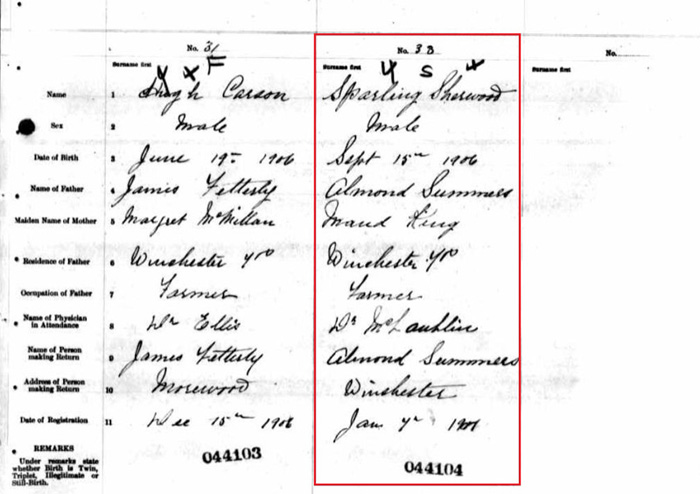 No. 31
No. 3B
No.
Surname first
Surname first
Surname first
Y x F
Y S x
Name 1 Hugh Carson Sparling Sherwood
Sex 2 Male Male
Date of Birth 3 June 19th 1906 Sept 15th 1906
Name of Father 4 James Fetterly Almond Summers
Maiden Name of Mother 5 Margret McMillan Maud King
Residence of Father 6 Winchester Winchester
Occupation of Father 7 Farmer Farmer
Name of Physician
in Attendance 8 Dr Ellis Dr McLauthlin
Name of Person
making Return 9 James Fetterly Almond Summers
Address of Person
making Return 10 Morewood Winchester
Date of Registration 11 Dec 15th 1906 Jan 7th
REMARKS
Under remarks state
whether Birth is Twin,
Triplet, Illegitimate or
Still-Birth.
044103 044104